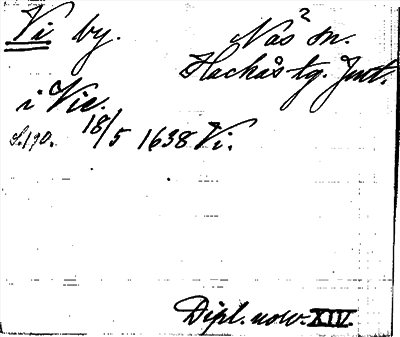 Vi by.
Näs sn.
Hackås tg. Jmt.
i Vic.
S. 190. 18/5 1638 Vi.
Dipl. norv. XIV.